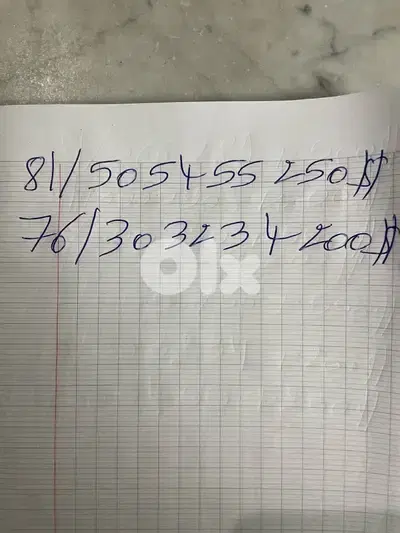 81/505455 250$
76/303234 200$
olx